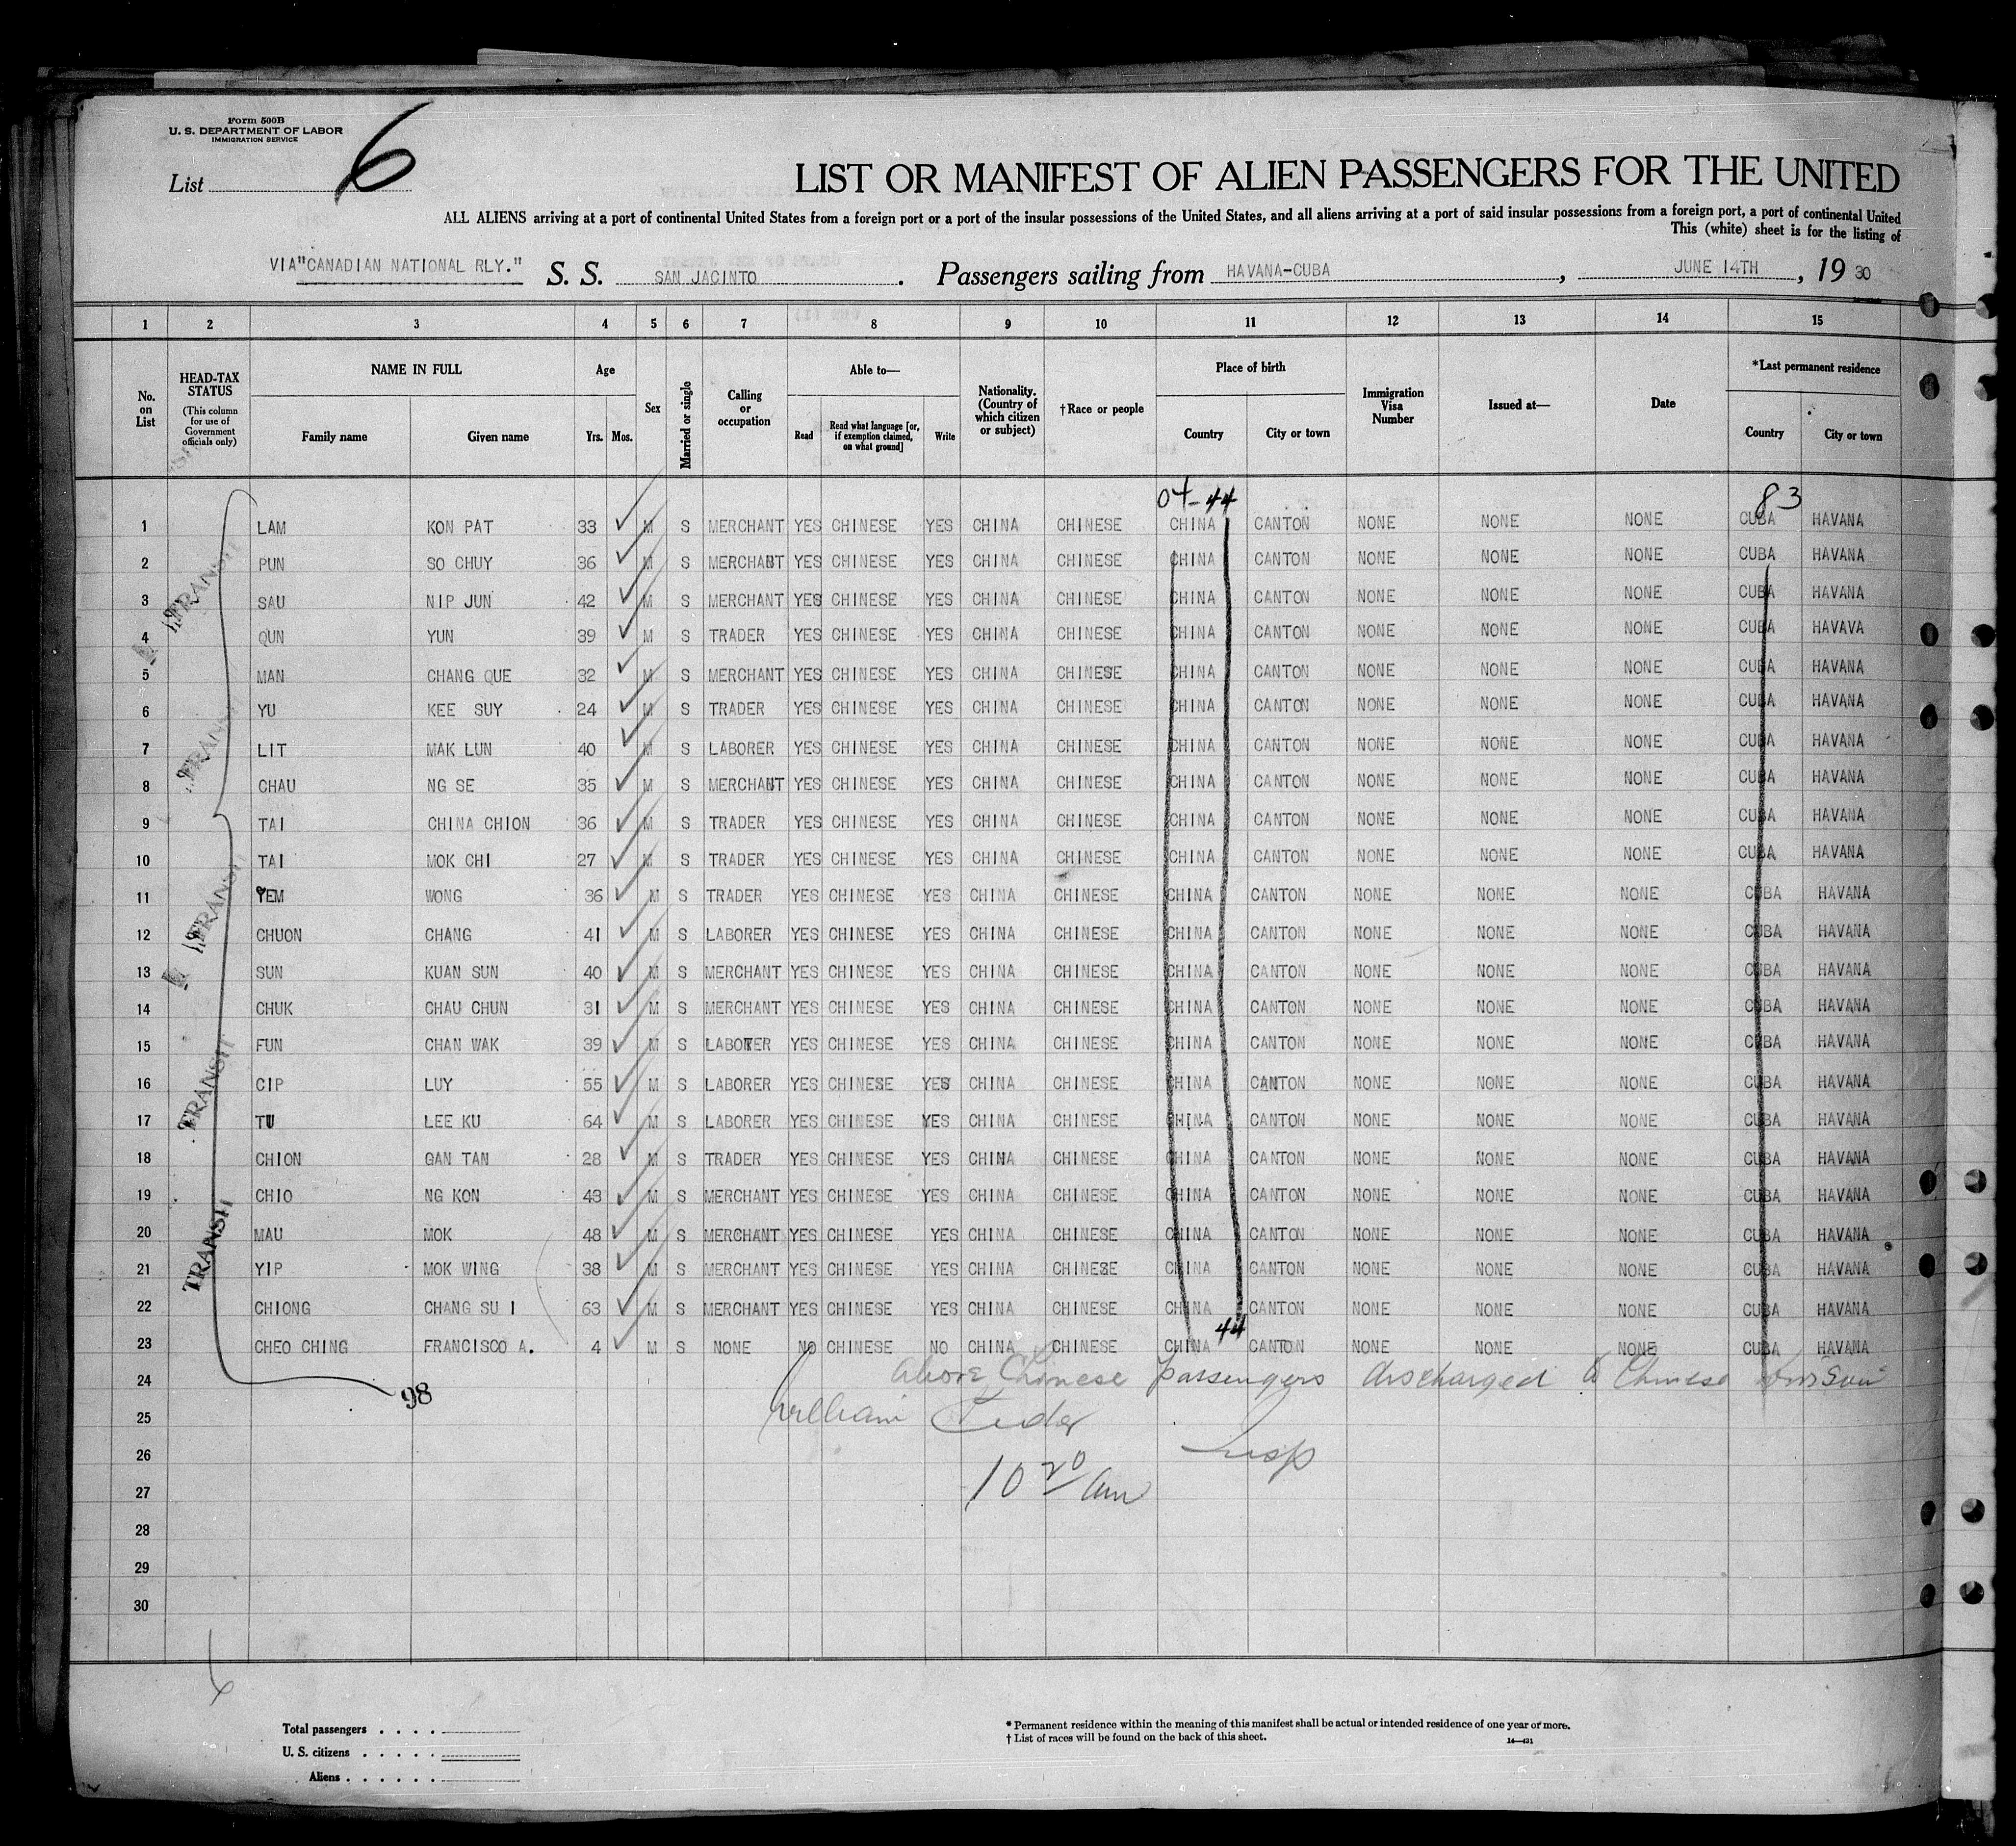 Form 500B
U. S. DEPARTMENT OF LABOR
IMMIGRATION SERVICE
List 6
LIST OR MANIFEST OF ALIEN PASSENGERS FOR THE UNITED
ALL ALIENS arriving at a port of continental United States from a foreign port or a port of the insular possessions of the United States, and all aliens arriving at a port of said insular possessions from a foreign port, a port of continental United
This (white) sheet is for the listing of
VIA"CANADIAN NATIONAL RLY." S. S. SAN JACINTO . Passengers sailing from HAVANA-CUBA , JUNE 14TH , 19 30
1 2 3 4 5 6 7 8 9 10 11 12 13 14 15
No. on List
HEAD-TAX STATUS (This column for use of Government officials only)
NAME IN FULL
Family name Given name
Age
Yrs. Mos.
Sex
Married or single
Calling or occupation
Able to—
Read Read what language [or, if exemption claimed, on what ground] Write
Nationality. (Country of which citizen or subject)
†Race or people
Place of birth
Country City or town
Immigration Visa Number
Issued at—
Date
*Last permanent residence
Country City or town
04-44 83
1 LAM KON PAT 33 M S MERCHANT YES CHINESE YES CHINA CHINESE CHINA CANTON NONE NONE NONE CUBA HAVANA
2 PUN SO CHUY 36 M S MERCHANT YES CHINESE YES CHINA CHINESE CHINA CANTON NONE NONE NONE CUBA HAVANA
3 SAU NIP JUN 42 M S MERCHANT YES CHINESE YES CHINA CHINESE CHINA CANTON NONE NONE NONE CUBA HAVANA
4 QUN YUN 39 M S TRADER YES CHINESE YES CHINA CHINESE CHINA CANTON NONE NONE NONE CUBA HAVAVA
5 MAN CHANG QUE 32 M S MERCHANT YES CHINESE YES CHINA CHINESE CHINA CANTON NONE NONE NONE CUBA HAVANA
6 YU KEE SUY 24 M S TRADER YES CHINESE YES CHINA CHINESE CHINA CANTON NONE NONE NONE CUBA HAVANA
7 LIT MAK LUN 40 M S LABORER YES CHINESE YES CHINA CHINESE CHINA CANTON NONE NONE NONE CUBA HAVANA
8 CHAU NG SE 35 M S MERCHANT YES CHINESE YES CHINA CHINESE CHINA CANTON NONE NONE NONE CUBA HAVANA
9 TAI CHINA CHION 36 M S TRADER YES CHINESE YES CHINA CHINESE CHINA CANTON NONE NONE NONE CUBA HAVANA
10 TAI MOK CHI 27 M S TRADER YES CHINESE YES CHINA CHINESE CHINA CANTON NONE NONE NONE CUBA HAVANA
11 YEM WONG 36 M S TRADER YES CHINESE YES CHINA CHINESE CHINA CANTON NONE NONE NONE CUBA HAVANA
12 CHUON CHANG 41 M S LABORER YES CHINESE YES CHINA CHINESE CHINA CANTON NONE NONE NONE CUBA HAVANA
13 SUN KUAN SUN 40 M S MERCHANT YES CHINESE YES CHINA CHINESE CHINA CANTON NONE NONE NONE CUBA HAVANA
14 CHUK CHAU CHUN 31 M S MERCHANT YES CHINESE YES CHINA CHINESE CHINA CANTON NONE NONE NONE CUBA HAVANA
15 FUN CHAN WAK 39 M S LABORER YES CHINESE YES CHINA CHINESE CHINA CANTON NONE NONE NONE CUBA HAVANA
16 CIP LUY 55 M S LABORER YES CHINESE YES CHINA CHINESE CHINA CANTON NONE NONE NONE CUBA HAVANA
17 TU LEE KU 64 M S LABORER YES CHINESE YES CHINA CHINESE CHINA CANTON NONE NONE NONE CUBA HAVANA
18 CHION GAN TAN 28 M S TRADER YES CHINESE YES CHINA CHINESE CHINA CANTON NONE NONE NONE CUBA HAVANA
19 CHIO NG KON 43 M S MERCHANT YES CHINESE YES CHINA CHINESE CHINA CANTON NONE NONE NONE CUBA HAVANA
20 MAU MOK 48 M S MERCHANT YES CHINESE YES CHINA CHINESE CHINA CANTON NONE NONE NONE CUBA HAVANA
21 YIP MOK WING 38 M S MERCHANT YES CHINESE YES CHINA CHINESE CHINA CANTON NONE NONE NONE CUBA HAVANA
22 CHIONG CHANG SU I 63 M S MERCHANT YES CHINESE YES CHINA CHINESE CHINA CANTON NONE NONE NONE CUBA HAVANA
44
23 CHEO CHING FRANCISCO A. 4 M S NONE NO CHINESE NO CHINA CHINESE CHINA CANTON NONE NONE NONE CUBA HAVANA
TRANSIT
TRANSIT
TRANSIT
TRANSIT
TRANSIT
24 98 Above Chinese passengers discharged to Chinese
25 William
26 Insp
27 10 20 am
28
29
30
Total passengers
U. S. citizens
Aliens
* Permanent residence within the meaning of this manifest shall be actual or intended residence of one year or more.
† List of races will be found on the back of this sheet.
14—431